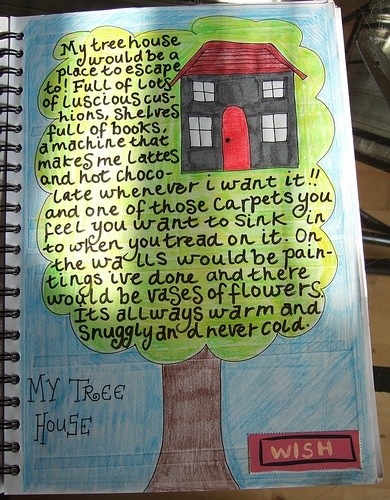 My tree house
would be a
place to escape
to! Full of lots
of luscious cus-
hions, shelves
full of books,
a machine that
makes me lattes
and hot choco-
late whenever i want it!!
and one of those carpets you
feel you want to sink in
to when you tread on it. On
the walls would be pain-
tings ive done and there
would be vases of flowers.
Its allways warm and
snuggly and never cold.
MY TREE
HOUSE
WISH